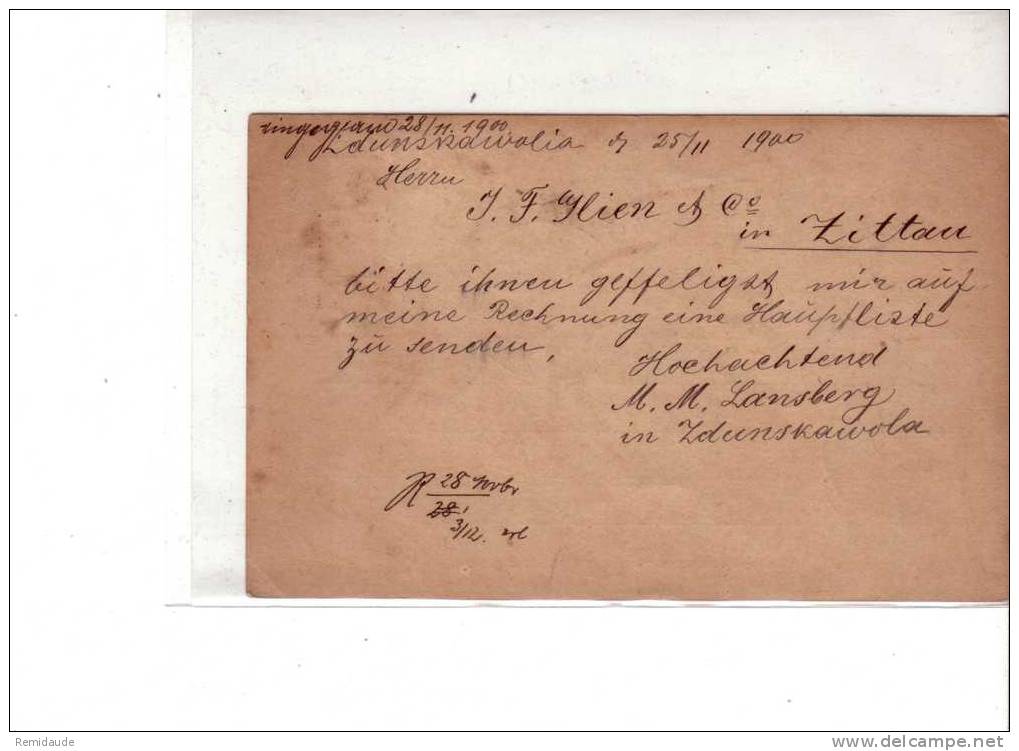 eingegang 28/11. 1900
Zdunskawolia d 25/11 1900
Herrn
J. F. Glien & Co
in Zittau
bitte ihnen geffeligst mir auf
meine Rechnung eine Haupfliste
zu senden,
Hochachtend
M. M. Lansberg
in Zdunskawola
R 28 Novbr
28.
3/12.
Remidaude
www.delcampe.net